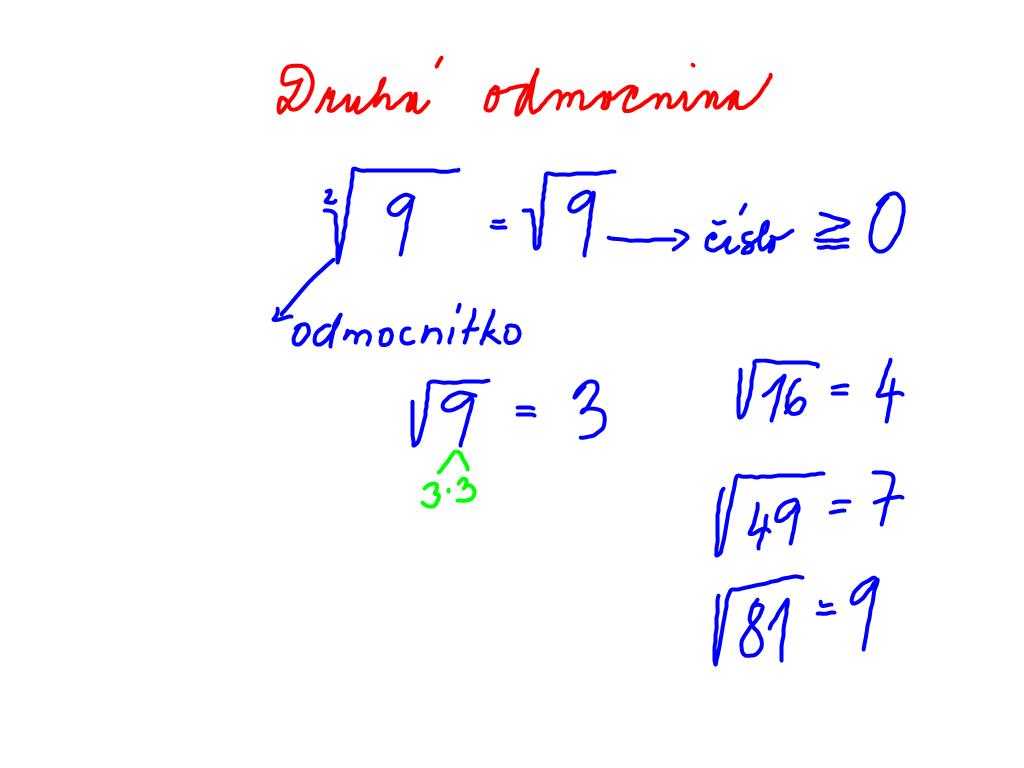 Druhá odmocnina
²√9 = √9 → číslo ≧ 0
odmocnítko
√9 = 3
3·3
√16 = 4
√49 = 7
√81 = 9